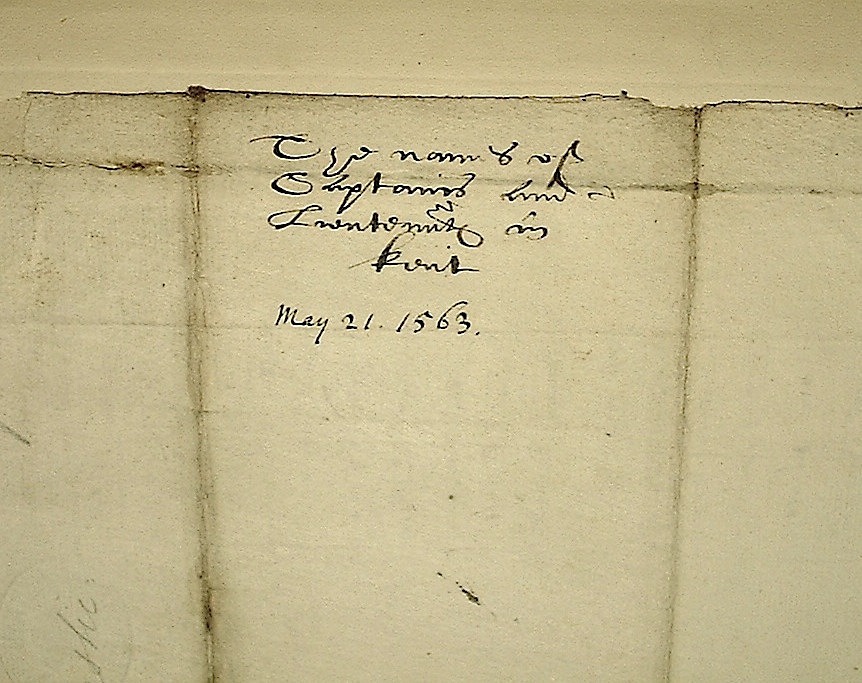 The names of
Captains and
Lieutennts in
kent
May 21. 1563.